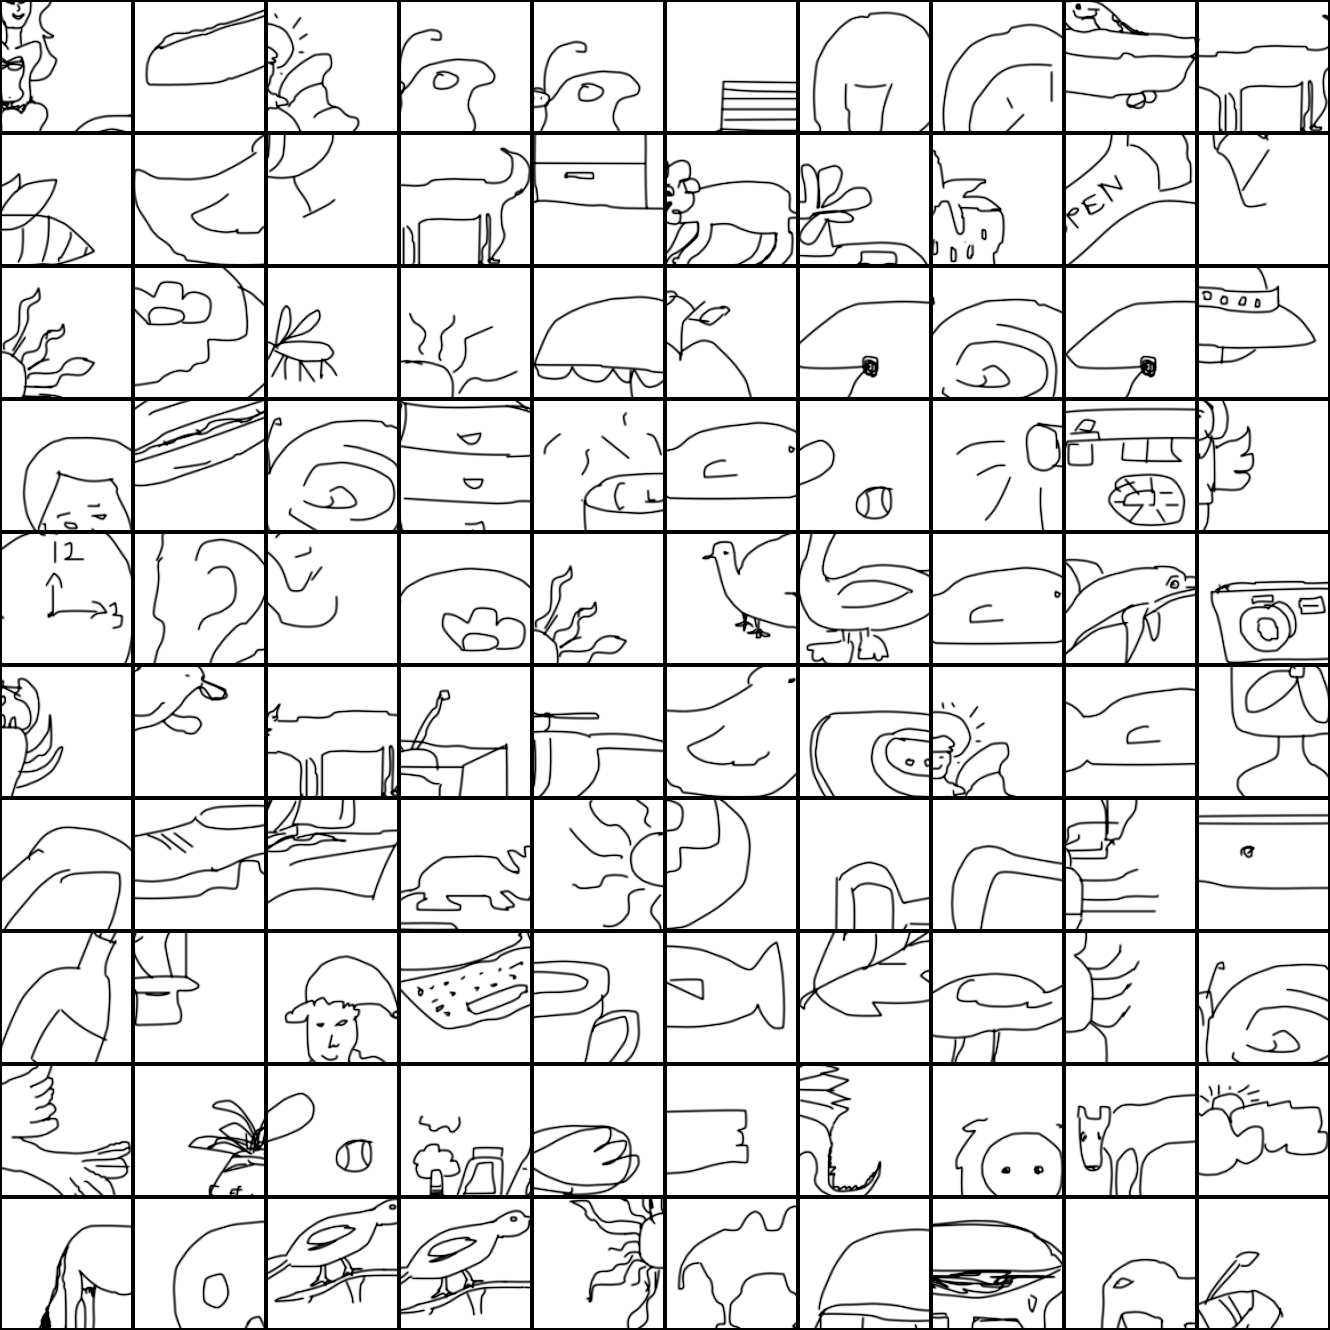 PEN
12
3